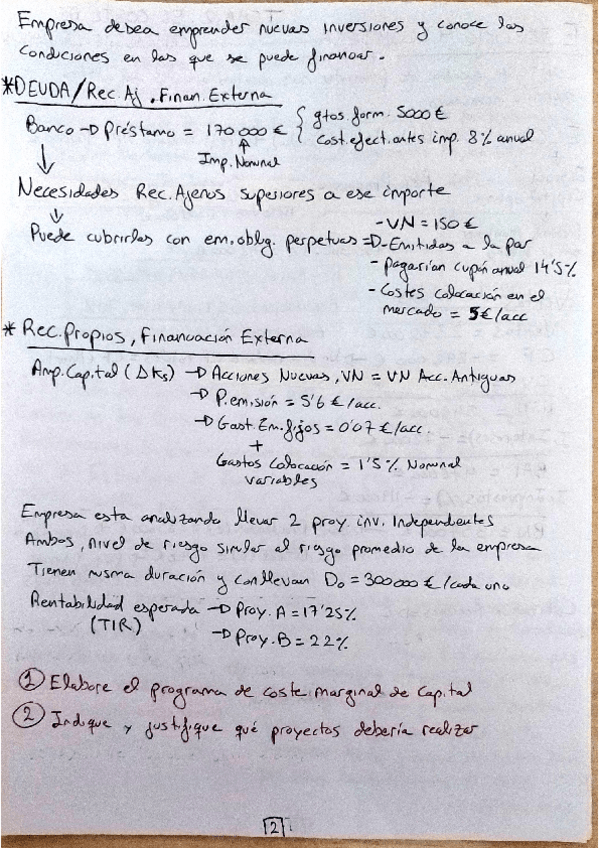 Empresa desea emprender nuevas inversiones y conoce las
condiciones en las que se puede financiar.
*DEUDA/Rec.Aj, Finan.Externa
Banco → Préstamo = 170 000 € { gtos.form. 5000 €
cost.efect.antes imp. 8% anual
↑
Imp.Nominal
↓
Necesidades Rec.Ajenos superiores a ese importe
↓
Puede cubrirlas con em.oblig. perpetuas ⇒
- VN = 150 €
- Emitidas a la par
- pagarían cupón anual 14'5%
- Costes colocación en el
mercado = 5€/acc
* Rec.Propios, Financiación Externa
Amp.Capital (ΔKs) → Acciones Nuevas, VN = VN Acc.Antiguas
→ P.emisión = 5'6 €/acc.
→ Gast.Em.fijos = 0'07 €/acc.
+
Gastos Colocación = 1'5% Nominal
variables
Empresa esta analizando llevar 2 proy. inv. Independentes
Ambos, nivel de riesgo similar al riesgo promedio de la empresa
Tienen misma duración y conllevan D₀ = 300 000 €/cada uno
Rentabilidad esperada → Proy. A = 17'25%
(TIR) → Proy. B = 22%
① Elabore el programa de coste marginal de Capital
② Indique y justifique qué proyectos debería realizar
2